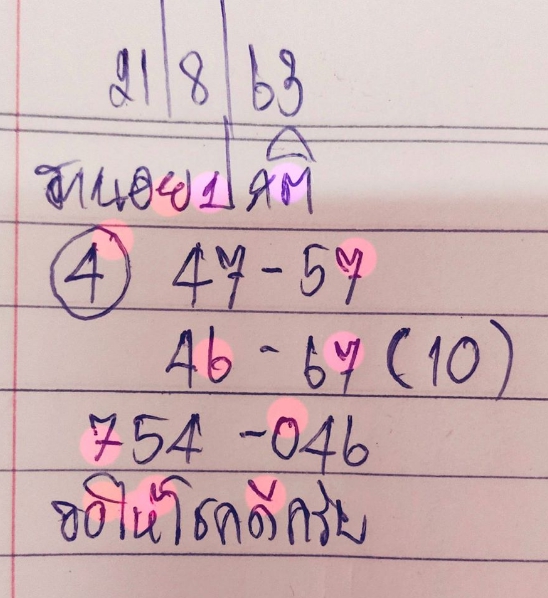 21|8|63
④ 47-57
46-67 (10)
754-046
ขอให้โชคดีครับ